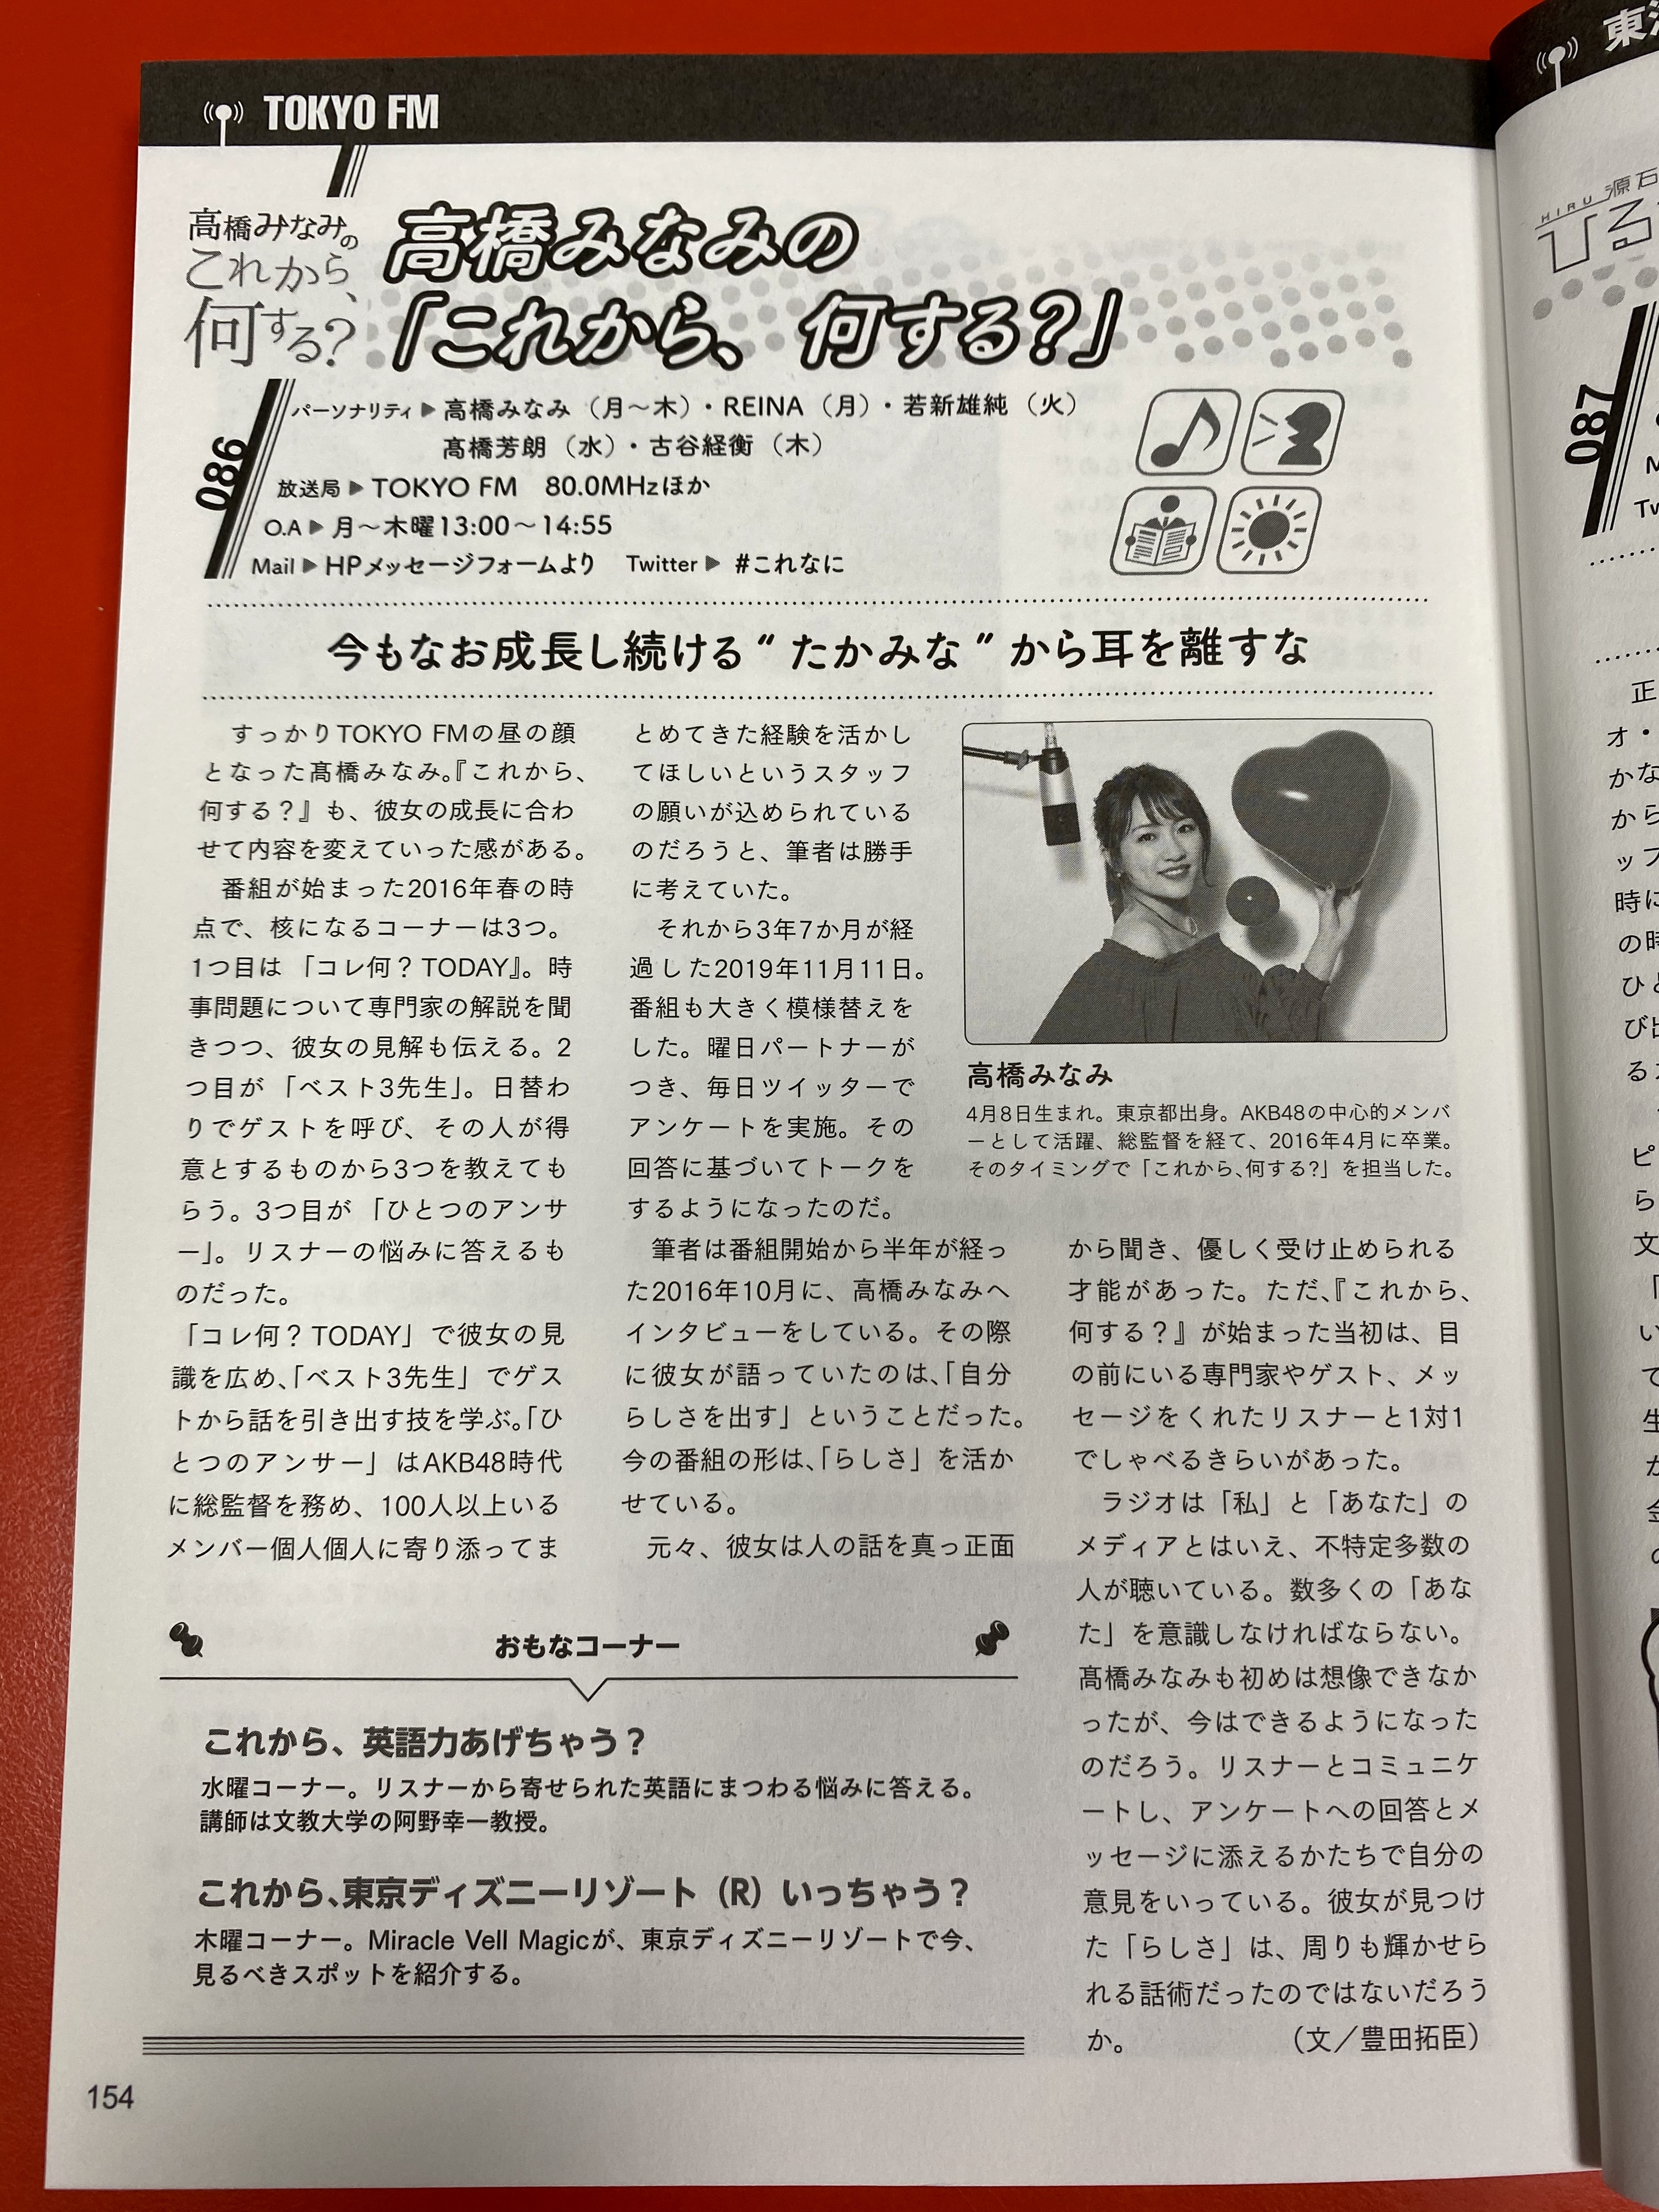 TOKYO FM
高橋みなみの
これから、
何する?
高橋みなみの
「これから、何する?」
086
パーソナリティ▶高橋みなみ（月〜木）・REINA（月）・若新雄純（火）
髙橋芳朗（水）・古谷経衡（木）
放送局▶TOKYO FM　80.0MHzほか
O.A▶月〜木曜13:00〜14:55
Mail▶HPメッセージフォームより　Twitter▶#これなに
今もなお成長し続ける“たかみな”から耳を離すな
すっかりTOKYO FMの昼の顔
となった髙橋みなみ。『これから、
何する？』も、彼女の成長に合わ
せて内容を変えていった感がある。
番組が始まった2016年春の時
点で、核になるコーナーは3つ。
1つ目は「コレ何？TODAY』。時
事問題について専門家の解説を聞
きつつ、彼女の見解も伝える。2
つ目が「ベスト3先生」。日替わ
りでゲストを呼び、その人が得
意とするものから3つを教えても
らう。3つ目が「ひとつのアンサ
ー」。リスナーの悩みに答えるも
のだった。
「コレ何？TODAY」で彼女の見
識を広め、「ベスト3先生」でゲス
トから話を引き出す技を学ぶ。「ひ
とつのアンサー」はAKB48時代
に総監督を務め、100人以上いる
メンバー個人個人に寄り添ってま
とめてきた経験を活かし
てほしいというスタッフ
の願いが込められている
のだろうと、筆者は勝手
に考えていた。
それから3年7か月が経
過した2019年11月11日。
番組も大きく模様替えを
した。曜日パートナーが
つき、毎日ツイッターで
アンケートを実施。その
回答に基づいてトークを
するようになったのだ。
筆者は番組開始から半年が経っ
た2016年10月に、高橋みなみへ
インタビューをしている。その際
に彼女が語っていたのは、「自分
らしさを出す」ということだった。
今の番組の形は、「らしさ」を活か
せている。
元々、彼女は人の話を真っ正面
高橋みなみ
4月8日生まれ。東京都出身。AKB48の中心的メンバ
ーとして活躍、総監督を経て、2016年4月に卒業。
そのタイミングで「これから、何する?」を担当した。
から聞き、優しく受け止められる
才能があった。ただ、『これから、
何する？』が始まった当初は、目
の前にいる専門家やゲスト、メッ
セージをくれたリスナーと1対1
でしゃべるきらいがあった。
ラジオは「私」と「あなた」の
メディアとはいえ、不特定多数の
人が聴いている。数多くの「あな
た」を意識しなければならない。
髙橋みなみも初めは想像できなか
ったが、今はできるようになった
のだろう。リスナーとコミュニケ
ートし、アンケートへの回答とメ
ッセージに添えるかたちで自分の
意見をいっている。彼女が見つけ
た「らしさ」は、周りも輝かせら
れる話術だったのではないだろう
か。　（文／豊田拓臣）
おもなコーナー
これから、英語力あげちゃう？
水曜コーナー。リスナーから寄せられた英語にまつわる悩みに答える。
講師は文教大学の阿野幸一教授。
これから、東京ディズニーリゾート（R）いっちゃう？
木曜コーナー。Miracle Vell Magicが、東京ディズニーリゾートで今、
見るべきスポットを紹介する。
154
087
HIRU 源石